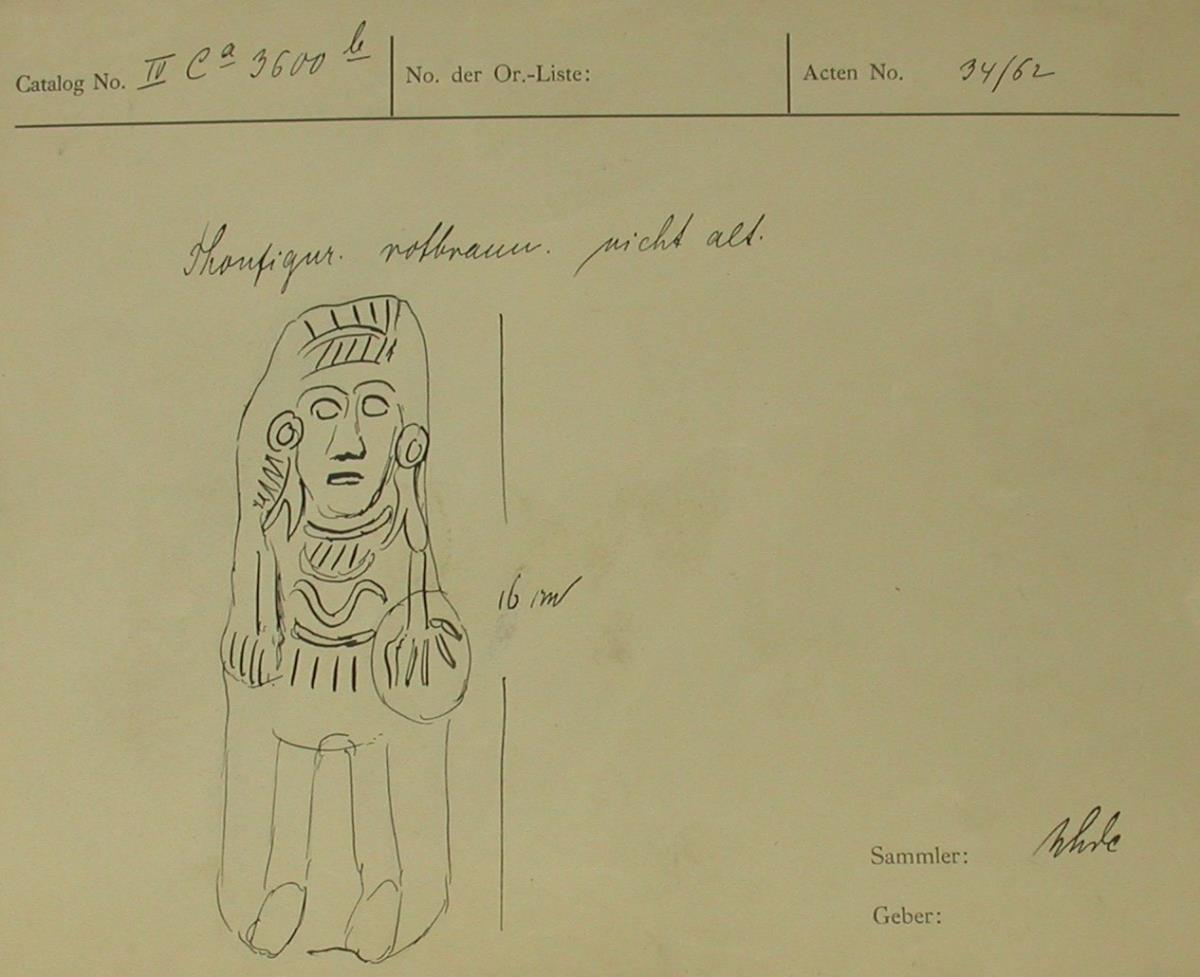 Catalog No. IV Ca 3600 b No. der Or.-Liste: Acten No. 34/62
Thonfigur. rotbraun. nicht alt.
16 cm
Sammler: Uhde
Geber: